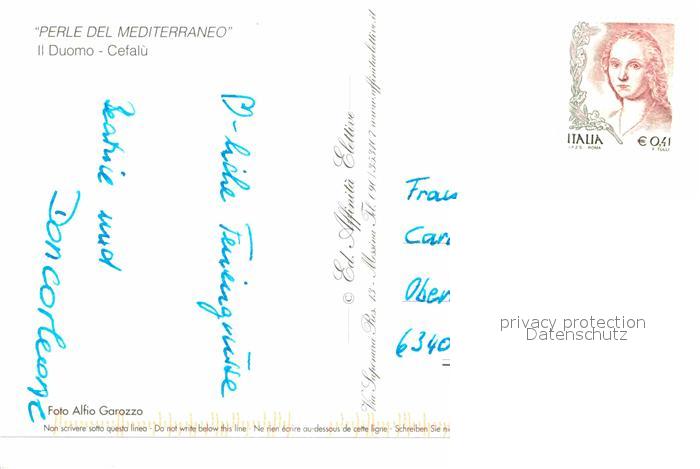 "PERLE DEL MEDITERRANEO"
Il Duomo - Cefalù
♡-liche Feriengrüsse
Beatrice und
Don corleone
© Ed. Affinità Elettive
Messina Tel. 090
Frau
Car
Ober
6340
ITALIA
€ 0,41
I.P.Z.S. ROMA
F. TULLI
privacy protection
Datenschutz
Foto Alfio Garozzo
Non scrivere sotto questa linea - Do not write below this line - Ne rien écrire au-dessous de cette ligne - Schreiben Sie ni